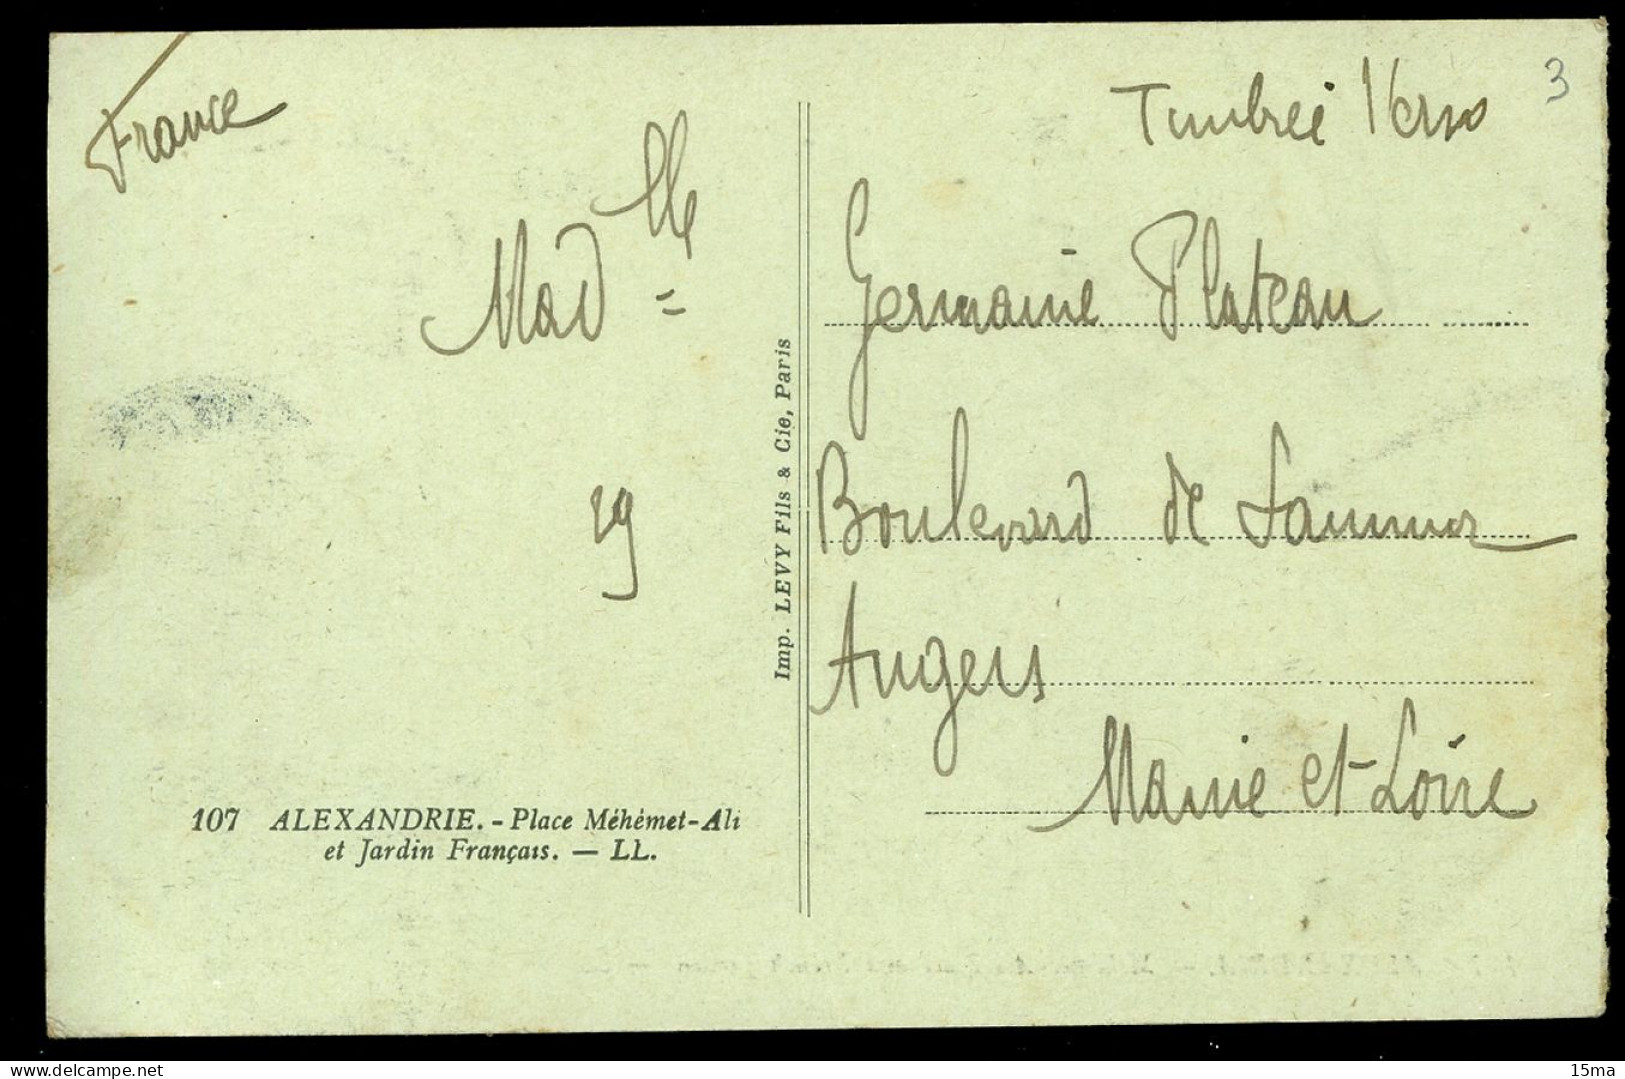 France
Timbrée Verso
3
Mad^lle =
Germaine Plateau
Boulevard de Saumur
29
Angers
Maine et-Loire
Imp. LEVY Fils & Cie, Paris
107 ALEXANDRIE. - Place Méhémet-Ali
et Jardin Français. — LL.
15ma